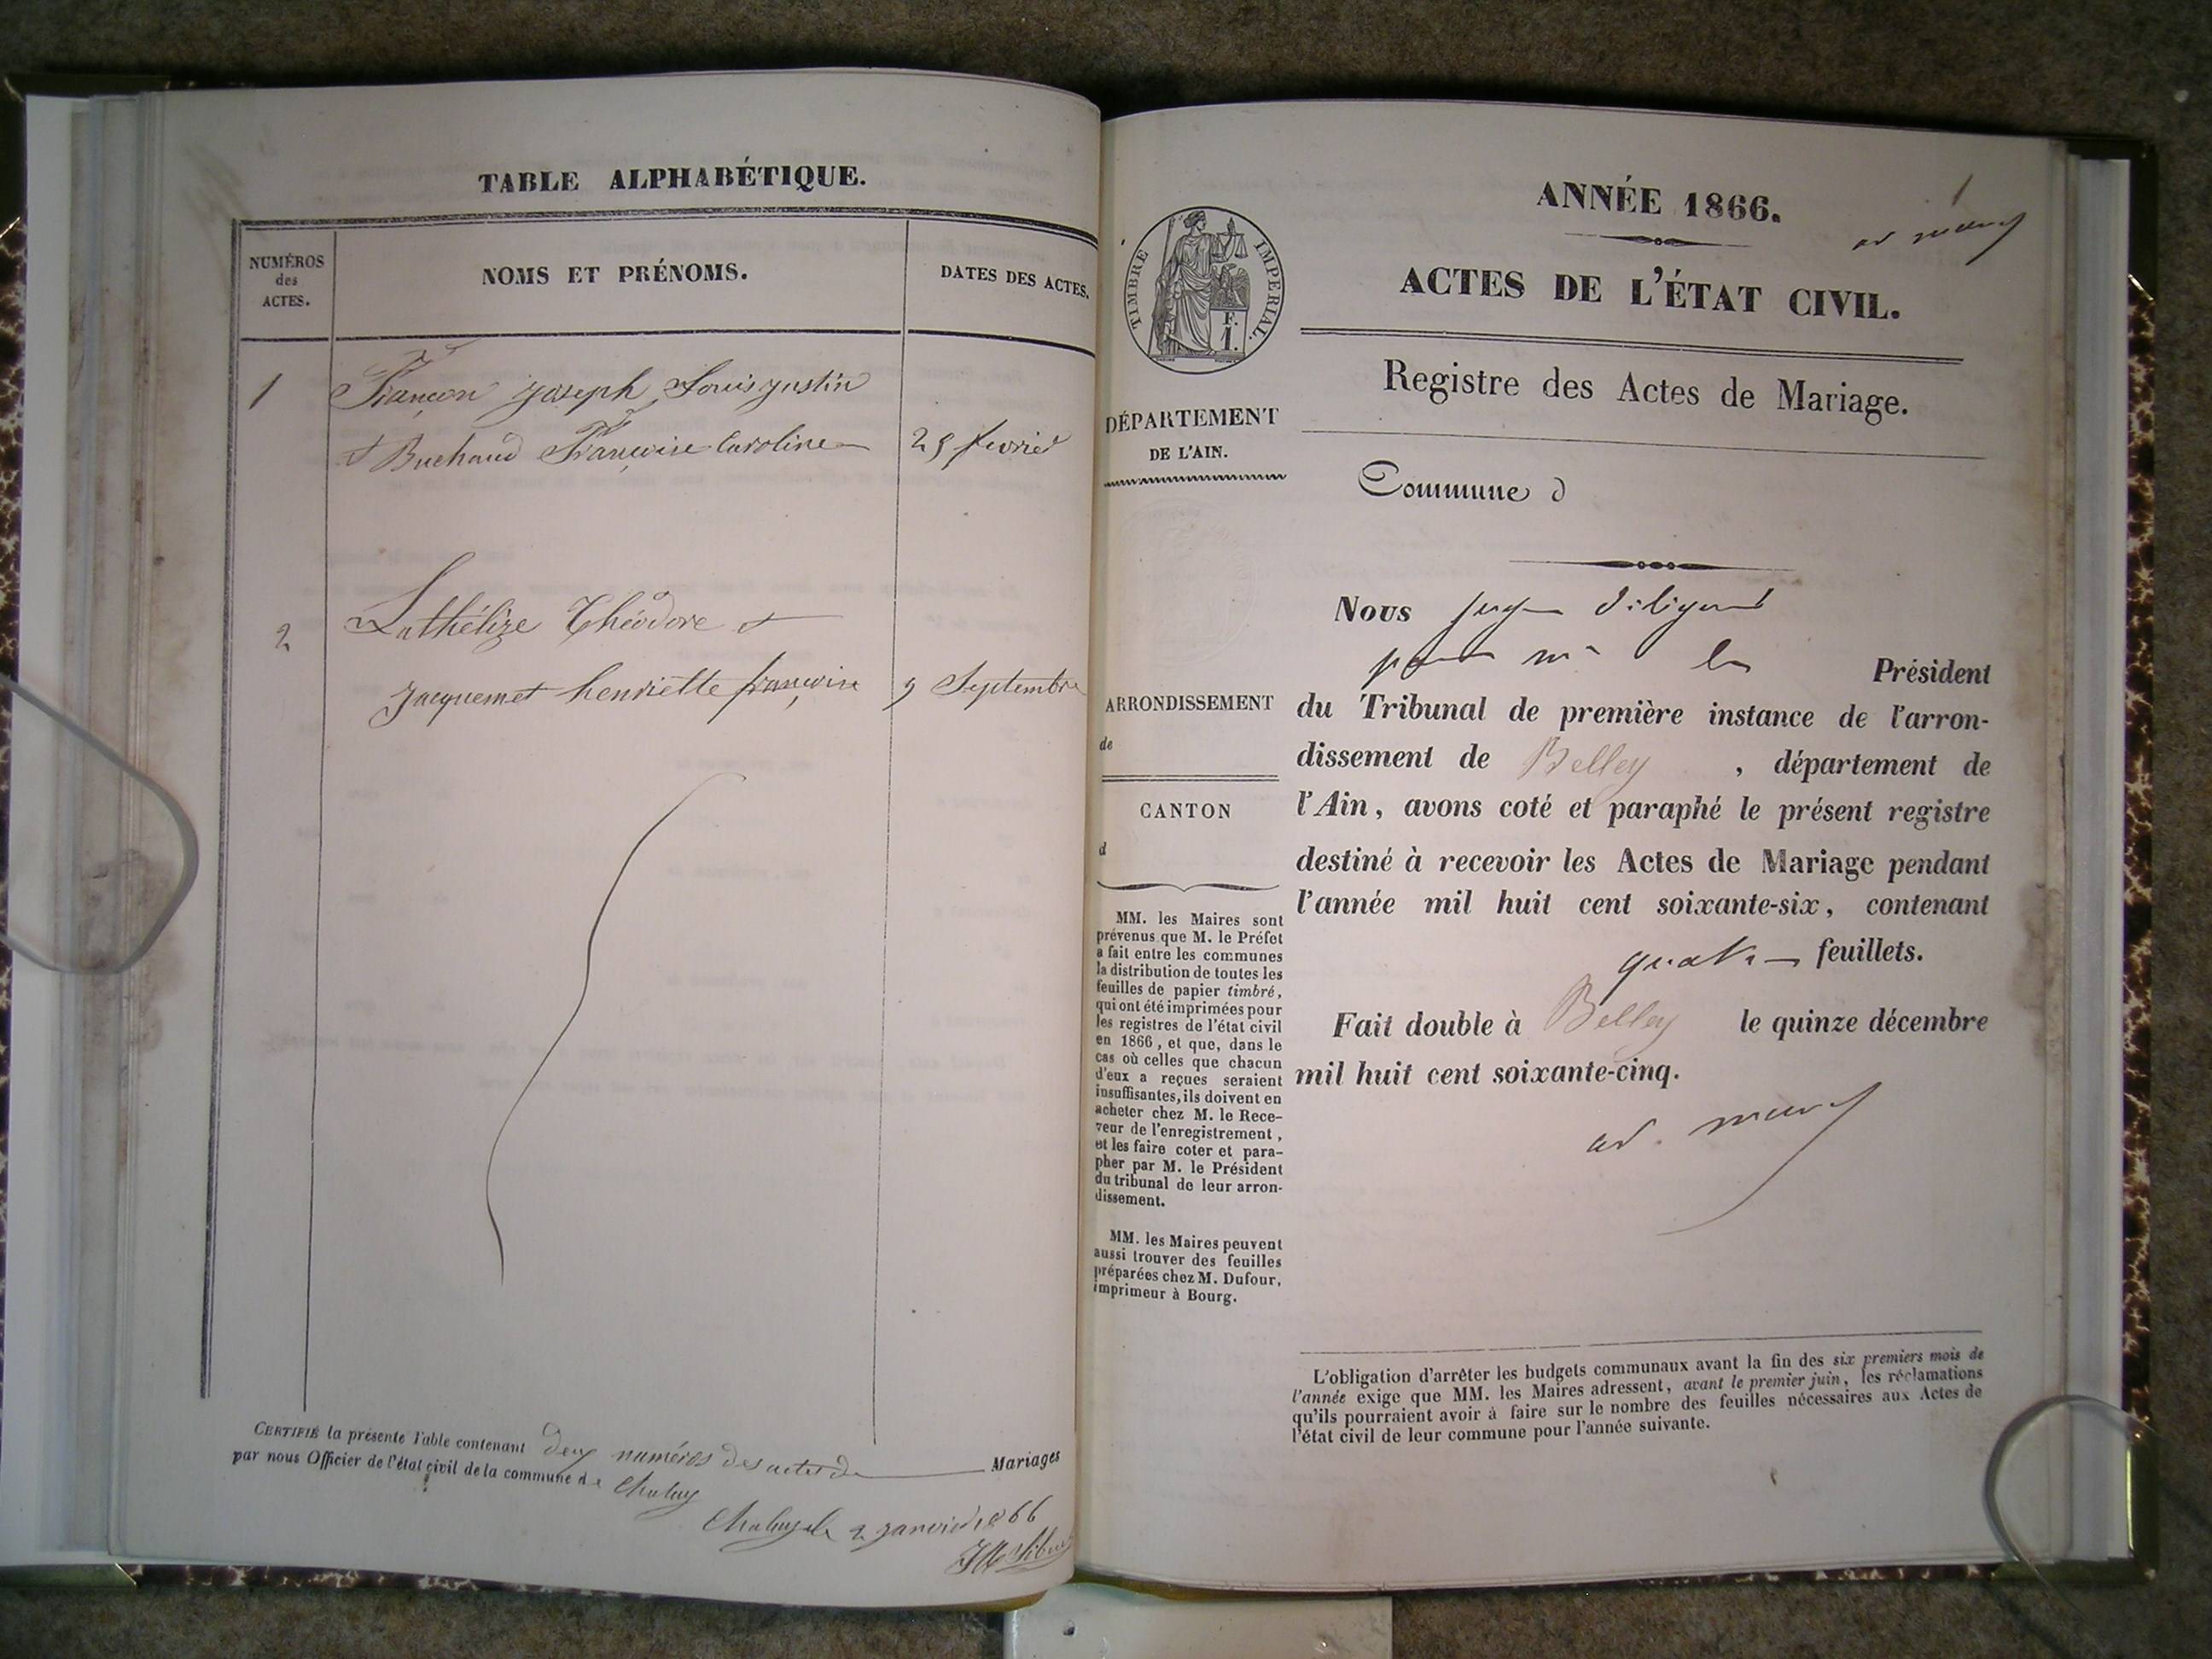 TABLE ALPHABÉTIQUE.
NUMÉROS
des
ACTES.
NOMS ET PRÉNOMS.
DATES DES ACTES.
1
Françon Joseph Louis Justin
et Buchaud Françoise Caroline
25 fevrier
2
Lathélize Théodore et
Jacquemet henriette françoise
9 Septembre
CERTIFIÉ la présente Table contenant deux numéros des actes de Mariages
par nous Officier de l'état civil de la commune de Chaley
Chaley le 2 janvier 1866
ANNÉE 1866.
1
TIMBRE IMPERIAL.
F.
1.
ACTES DE L'ÉTAT CIVIL.
Registre des Actes de Mariage.
DÉPARTEMENT
DE L'AIN.
Commune d
ARRONDISSEMENT
de
CANTON
d
MM. les Maires sont
prévenus que M. le Préfet
a fait entre les communes
la distribution de toutes les
feuilles de papier timbré,
qui ont été imprimées pour
les registres de l'état civil
en 1866, et que, dans le
cas où celles que chacun
d'eux a reçues seraient
insuffisantes, ils doivent en
acheter chez M. le Rece-
veur de l'enregistrement,
et les faire coter et para-
pher par M. le Président
du tribunal de leur arron-
dissement.
MM. les Maires peuvent
aussi trouver des feuilles
préparées chez M. Dufour,
imprimeur à Bourg.
Nous juge
pour Mr le Président
du Tribunal de première instance de l'arron-
dissement de Belley, département de
l'Ain, avons coté et paraphé le présent registre
destiné à recevoir les Actes de Mariage pendant
l'année mil huit cent soixante-six, contenant
quatre feuillets.
Fait double à Belley le quinze décembre
mil huit cent soixante-cinq.
L'obligation d'arrêter les budgets communaux avant la fin des six premiers mois de
l'année exige que MM. les Maires adressent, avant le premier juin, les réclamations
qu'ils pourraient avoir à faire sur le nombre des feuilles nécessaires aux Actes de
l'état civil de leur commune pour l'année suivante.